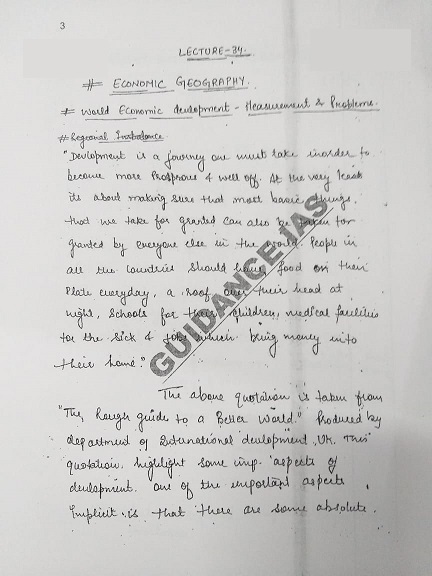 3
LECTURE-34.
# ECONOMIC GEOGRAPHY.
# World Economic development - Measurement & Problems.
# Regional Imbalance
"Devlopment is a journey one must take inorder to
become more Prosprous & well off. At the very least
its about making sure that most basic things.
that we take for granted can also be taken for
granted by everyone else in the world. People in
all the countries should have food on their
Plate everyday, a roof over their head at
night, Schools for their children, medical facilities
for the sick & jobs which bring money into
their home."
The above quotation is taken from
"The Rough guide to a Better World." Produced by
department of International development, UK. This
quotation, highlight some imp. aspects of
development. one of the important aspects
implicit is that there are some absolute.
GUIDANCE IAS